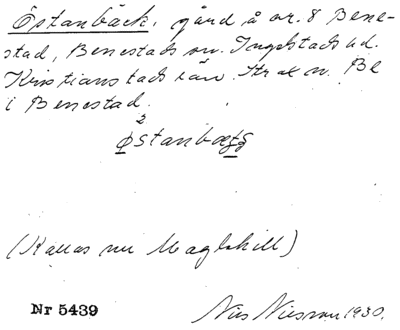 Östanbäck. gård å nr. 8 Bene-
stad, Benestads sn. Ingelstads hd.
Kristianstads län. Str ax n. Bl
i Benestad.
2
østanbæʒ̊
(Kallas nu Maglehill)
Nr 5439
Nils Nilsson 1930.